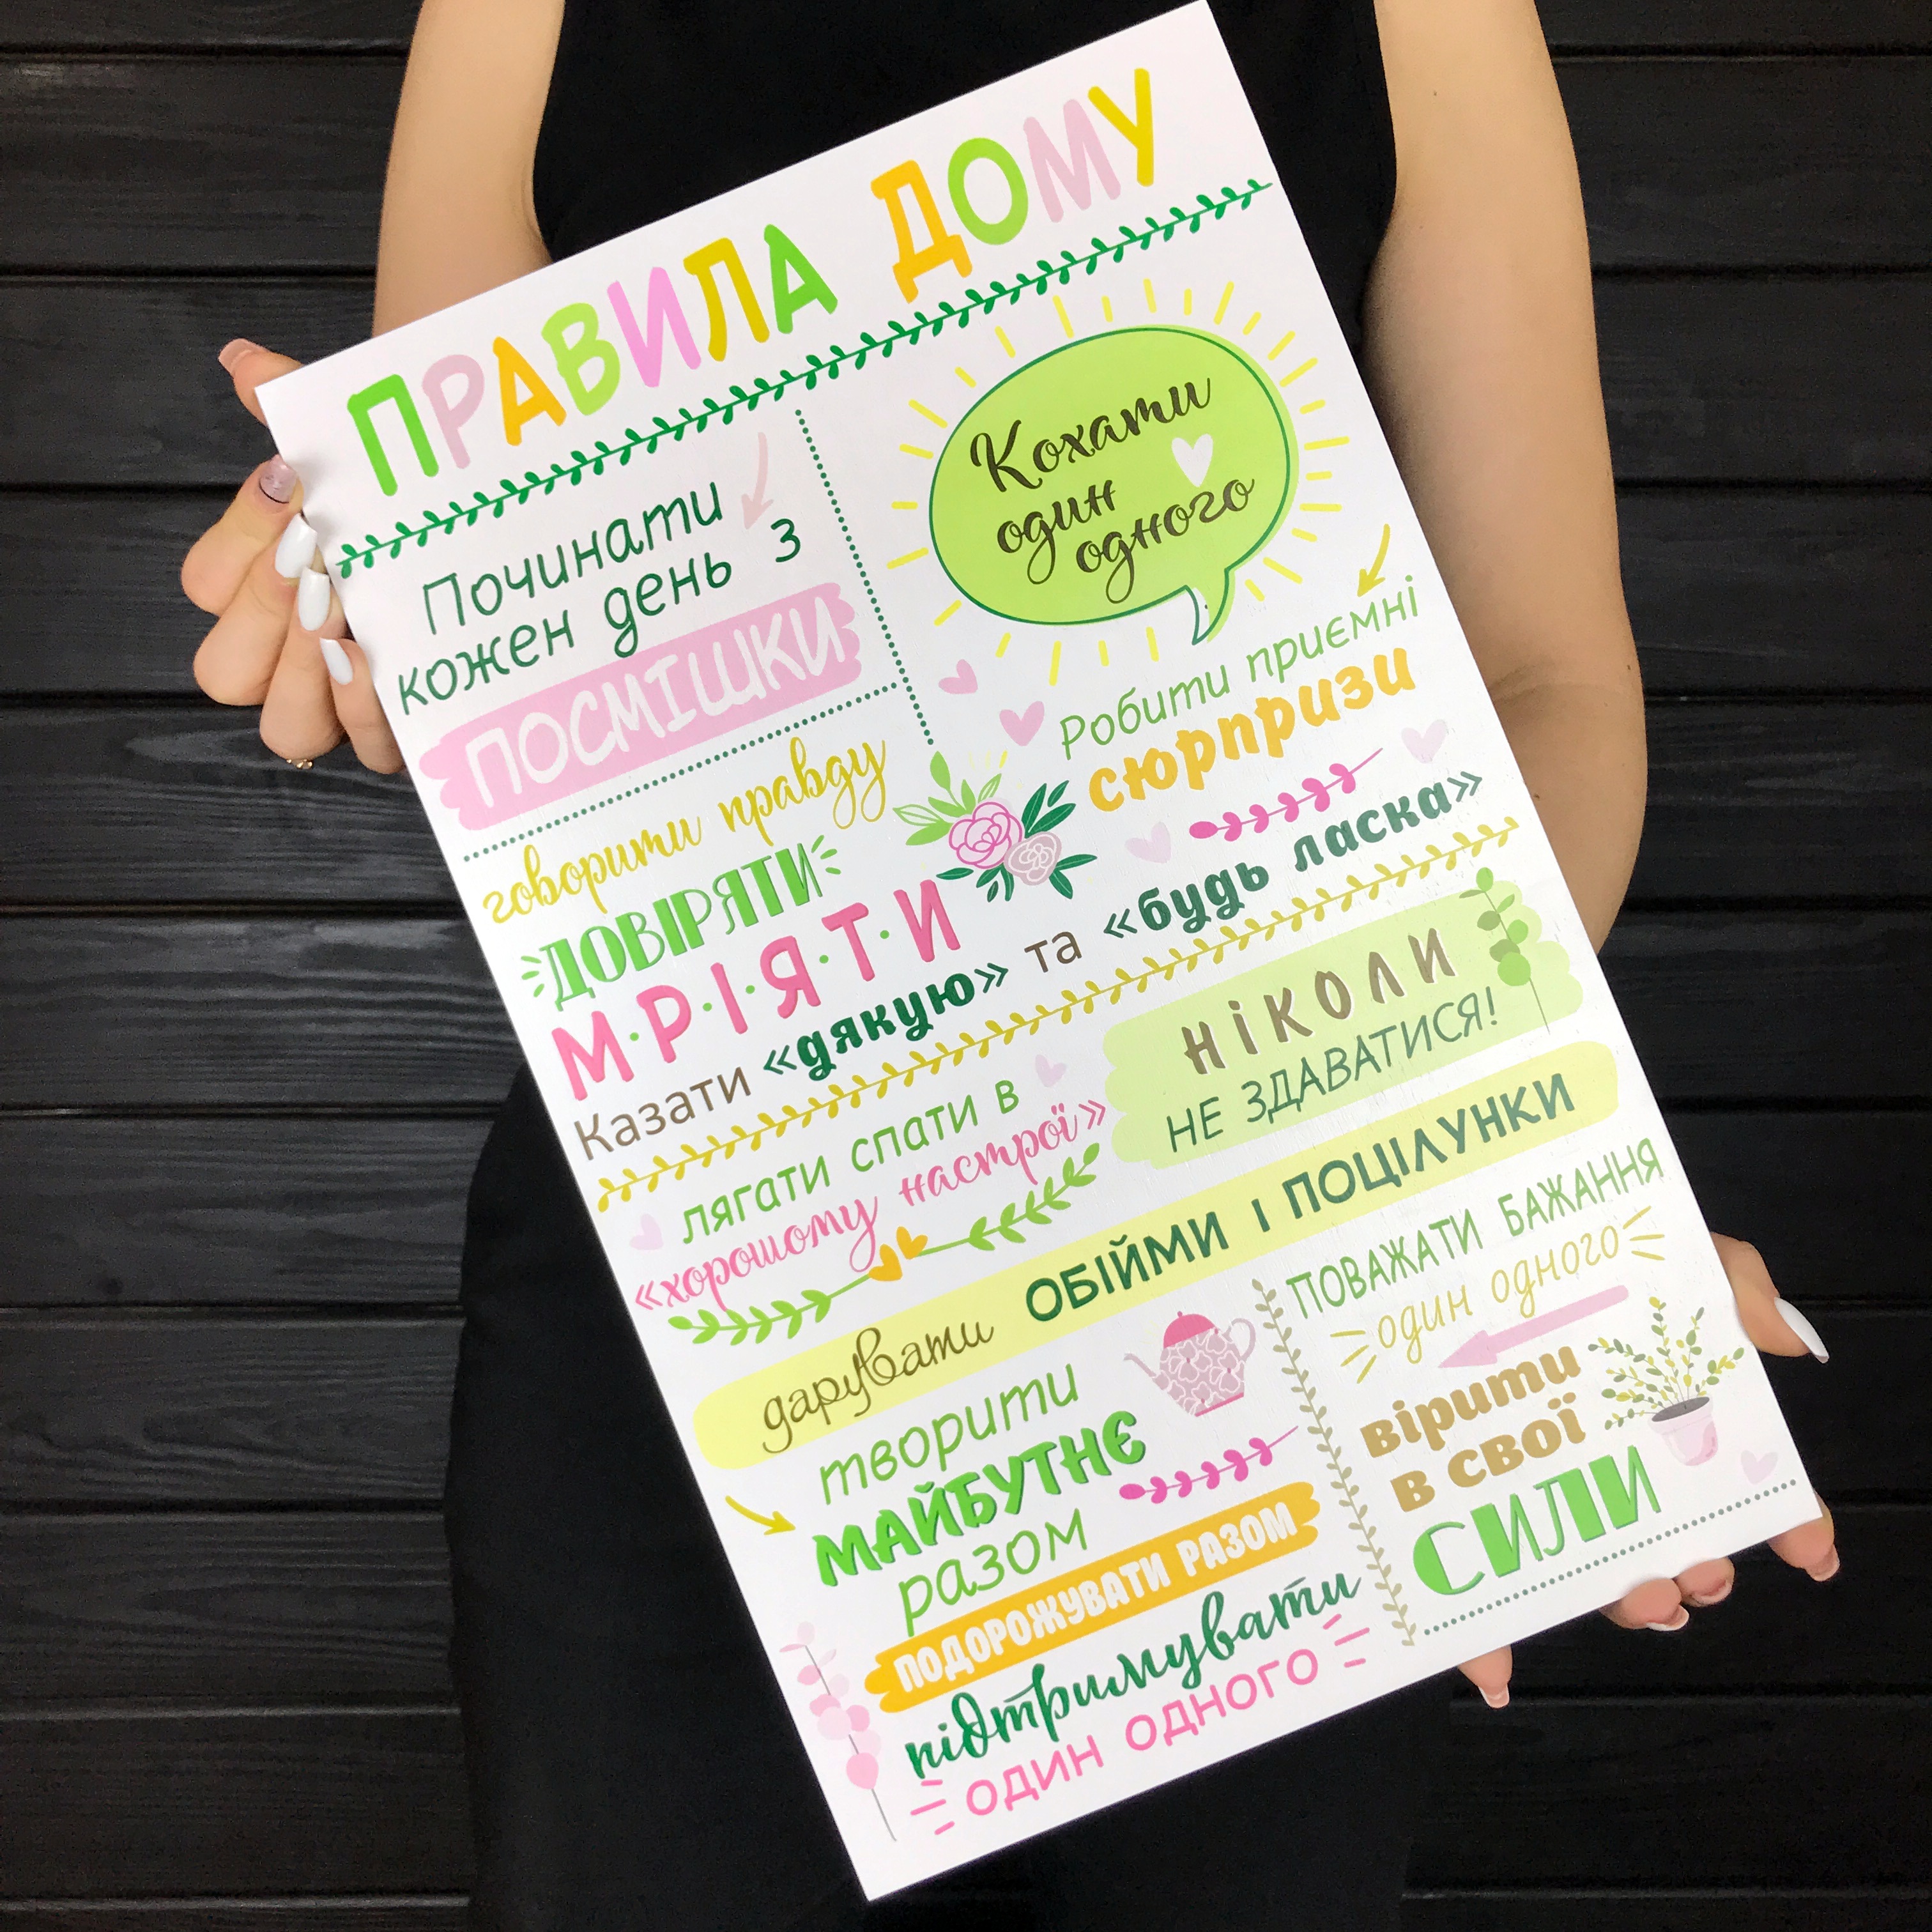 ПРАВИЛА ДОМУ
Починати
кожен день з
ПОСМІШКИ
Кохати
один
одного
Робити приємні
сюрпризи
говорити правду
ДОВІРЯТИ
М·Р·І·Я·Т·И
Казати «дякую» та «будь ласка»
лягати спати в
«хорошому настрої»
НІКОЛИ
НЕ ЗДАВАТИСЯ!
дарувати ОБІЙМИ І ПОЦІЛУНКИ
творити
МАЙБУТНЄ
разом
ПОДОРОЖУВАТИ РАЗОМ
підтримувати
ОДИН ОДНОГО
ПОВАЖАТИ БАЖАННЯ
один одного
вірити
в свої
СИЛИ